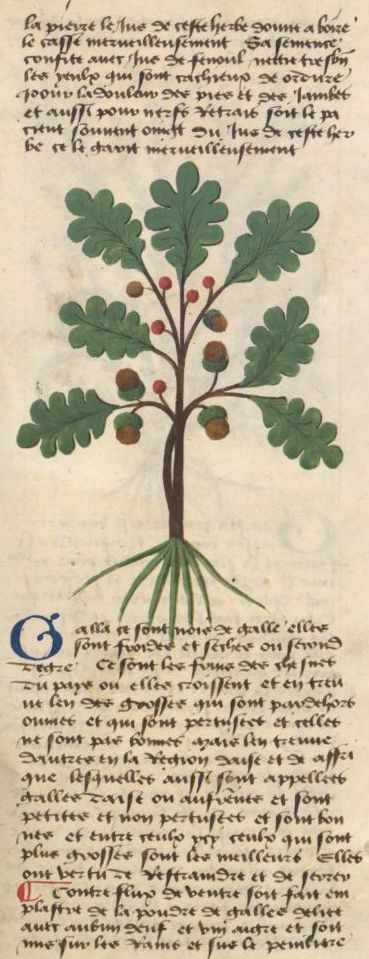 la pierre le Jus de ceste herbe donne a boire
le casse merveilleusement Sa semence
confite avec Jus de fenoul nettie tresbn
les yeulx qui sont cachieux de ordure
pour la douleur des pies et des Jambes
et aussi pour nerfs Retrais soit le pa
cient souvent oingt du Jus de ceste her
be ce le garit merveilleusement
Galla ce sont nois de galle elles
sont froides et seches ou second
degre Ce sont les fruis des chesnes
du pays ou elles croissent et en treu
ve len des grosses qui sont par dehors
onnies et qui sont pertusees et celles
ne sont pas bonnes mais len treuve
dautres en la Region daise et de affri
que lesquelles aussi sont appellees
galles daise ou et sont
petites et non pertusees et sont bon
nes et entre ceulx ycy ceulx qui sont
plus grosses sont les meilleurs Elles
ont vertu de Restraindre et de secrer
Contre flux de ventre soit fait em
plastre de la pouldre de galles delice
avec aubun deuf et vin aigre et soit
mis sur les Rains et sur le penillere